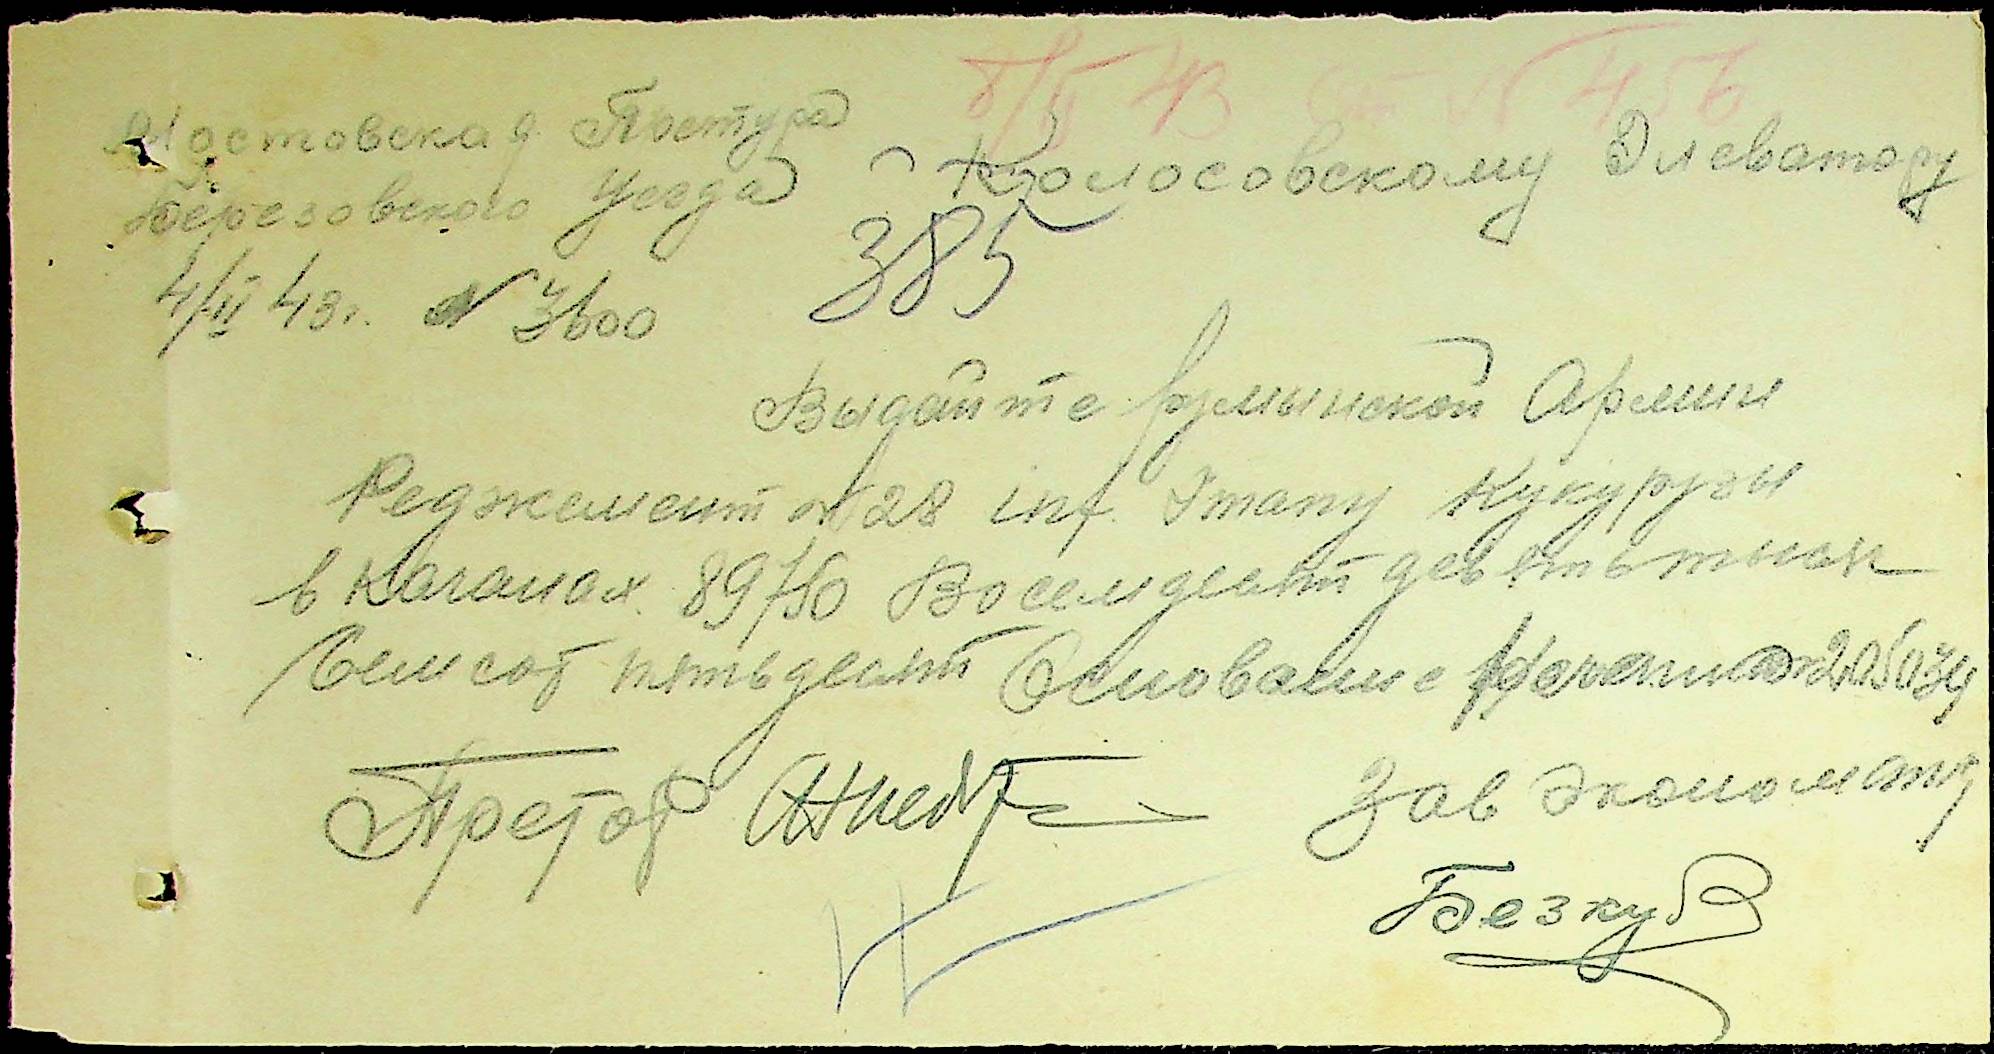 8/II 43 от № 456
Мостовская Претура
Березовского Уезда
Колосовскому Элеватору
385
4/II 43г. № 3600
Выдайте румынской Армии
Реджемент №28 inf. Этапу Кукурузы
в Качанах 89750 Восемдесят девять тысяч
Семсот пятьдесят Основание №205034
Претор
Зав Экономат
Безку